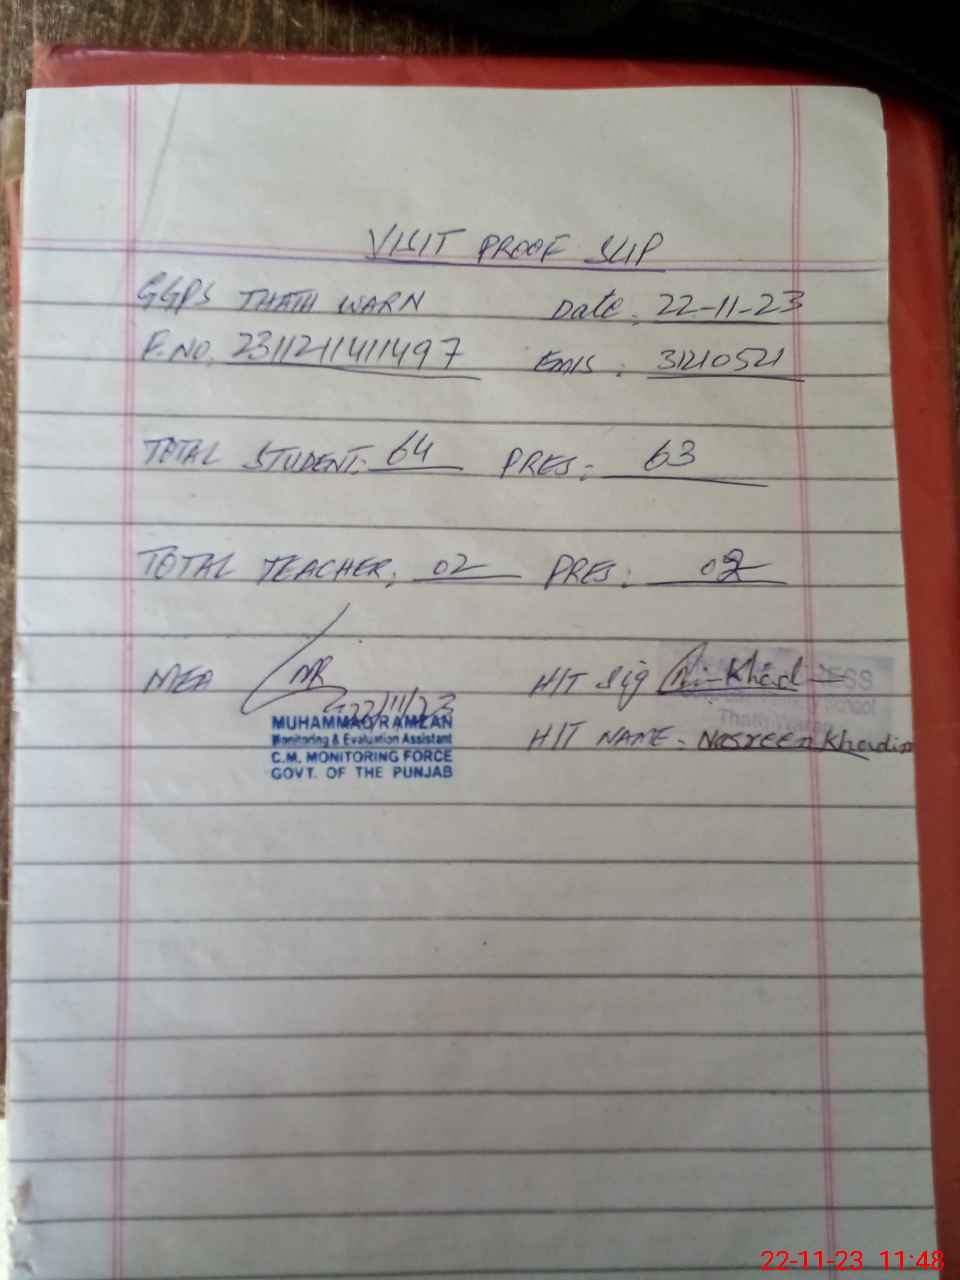 VISIT PROOF SLIP
GGPS THATH WARN Date: 22-11-23
F.NO. 2311211411497 EMIS: 31210521
TOTAL STUDENT: 64 PRES: 63
TOTAL TEACHER: 02 PRES: 02
MEA MR H/T Sig N. Khad
22/11/23
MUHAMMAD RAMZAN H/T NAME- Nasreen Khadim
Monitoring & Evaluation Assistant
C.M. MONITORING FORCE
GOVT. OF THE PUNJAB
School
Thath
22-11-23 11:48